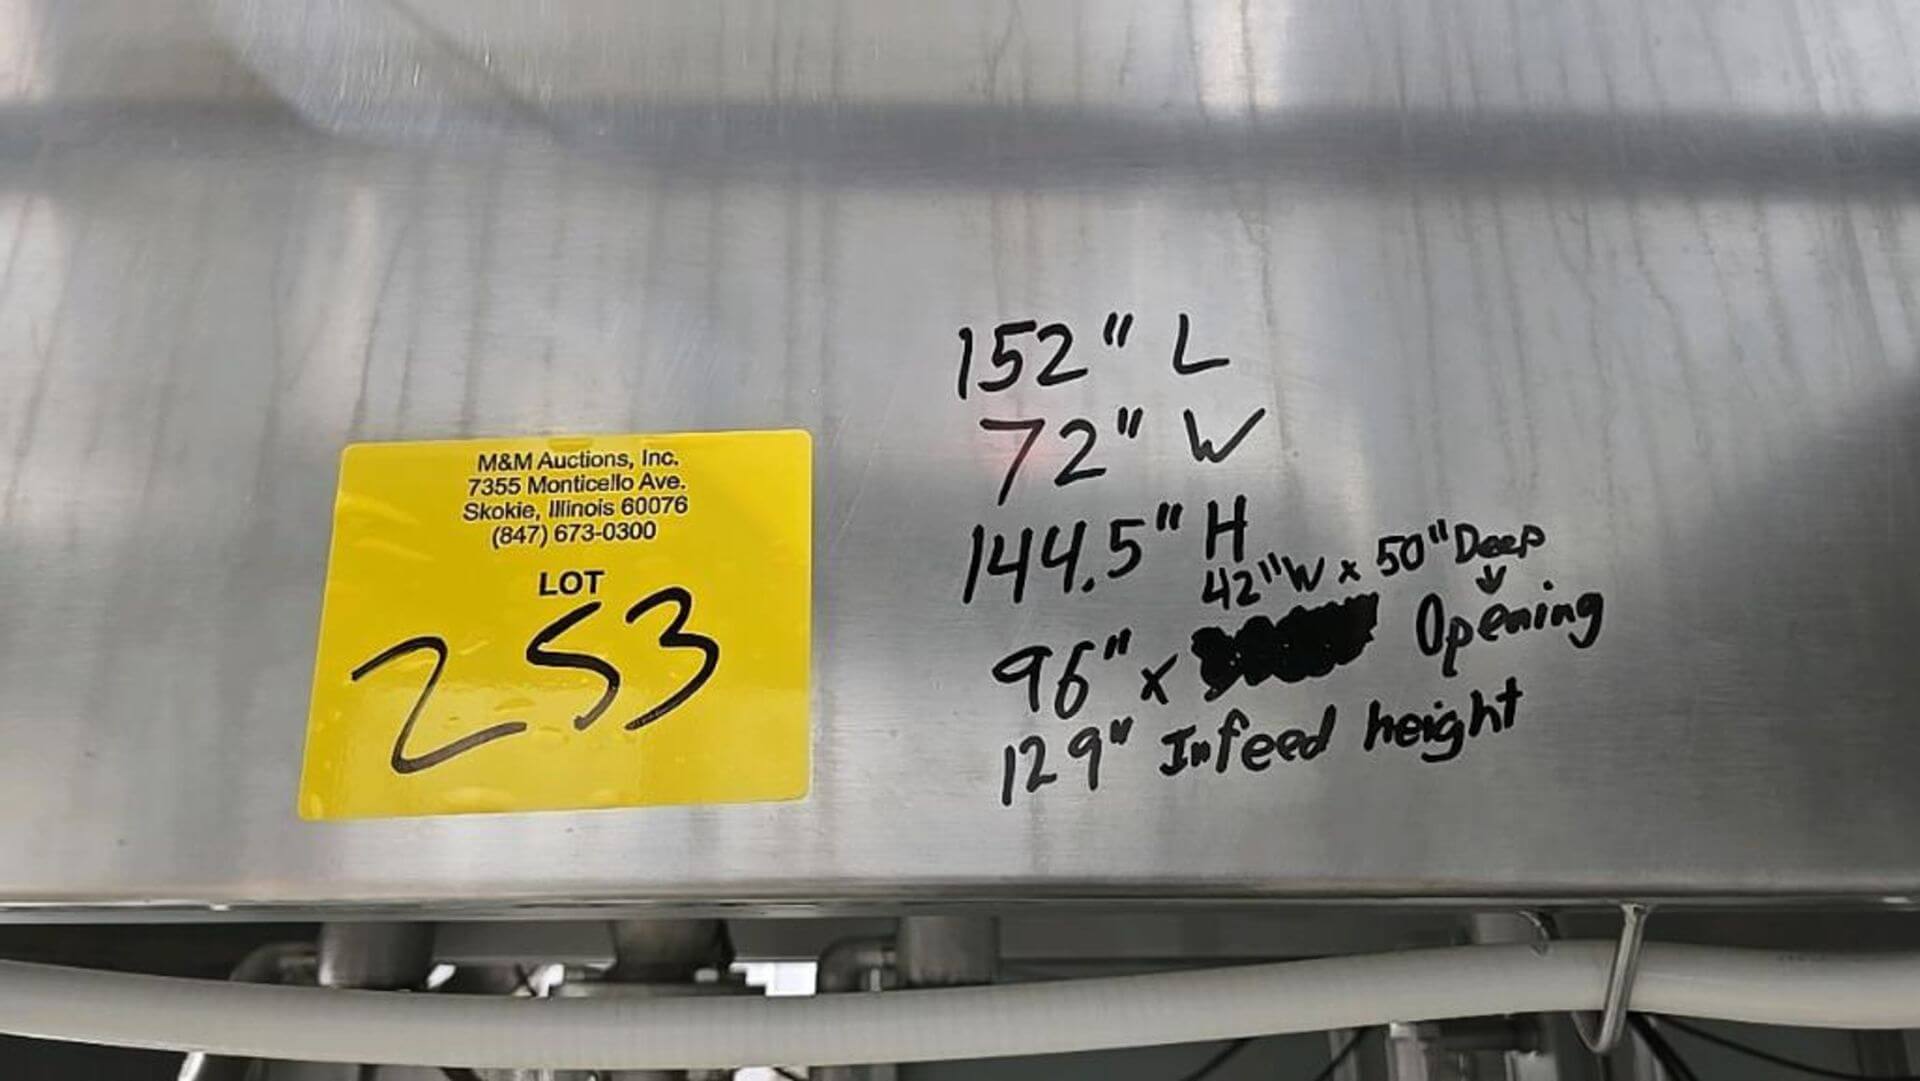 M&M Auctions, Inc.
7355 Monticello Ave.
Skokie, Illinois 60076
(847) 673-0300
LOT
253
152" L
72" W
144.5" H
42"W x 50" Deep
96" x Opening
129" Infeed height